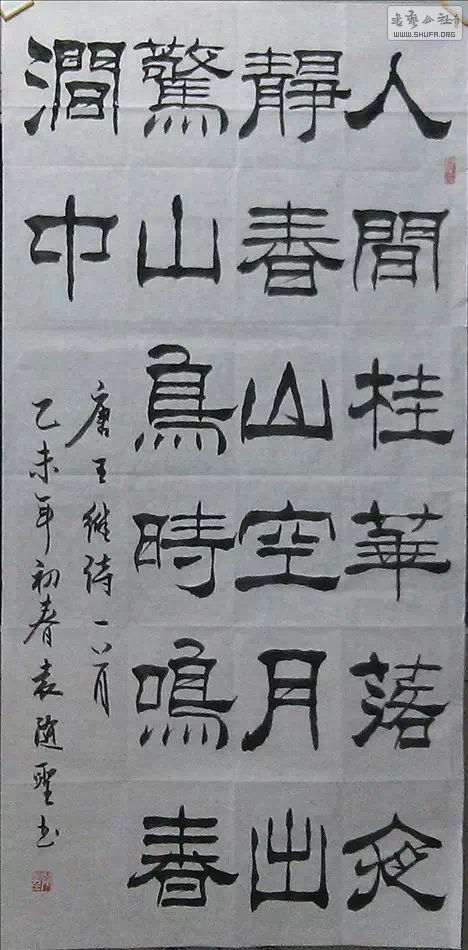 人間桂華落夜
靜春山空月出
驚山鳥時鳴春
澗中
唐王维诗一首
乙未年初春袁随聖书
书艺公社
WWW.SHUFA.ORG